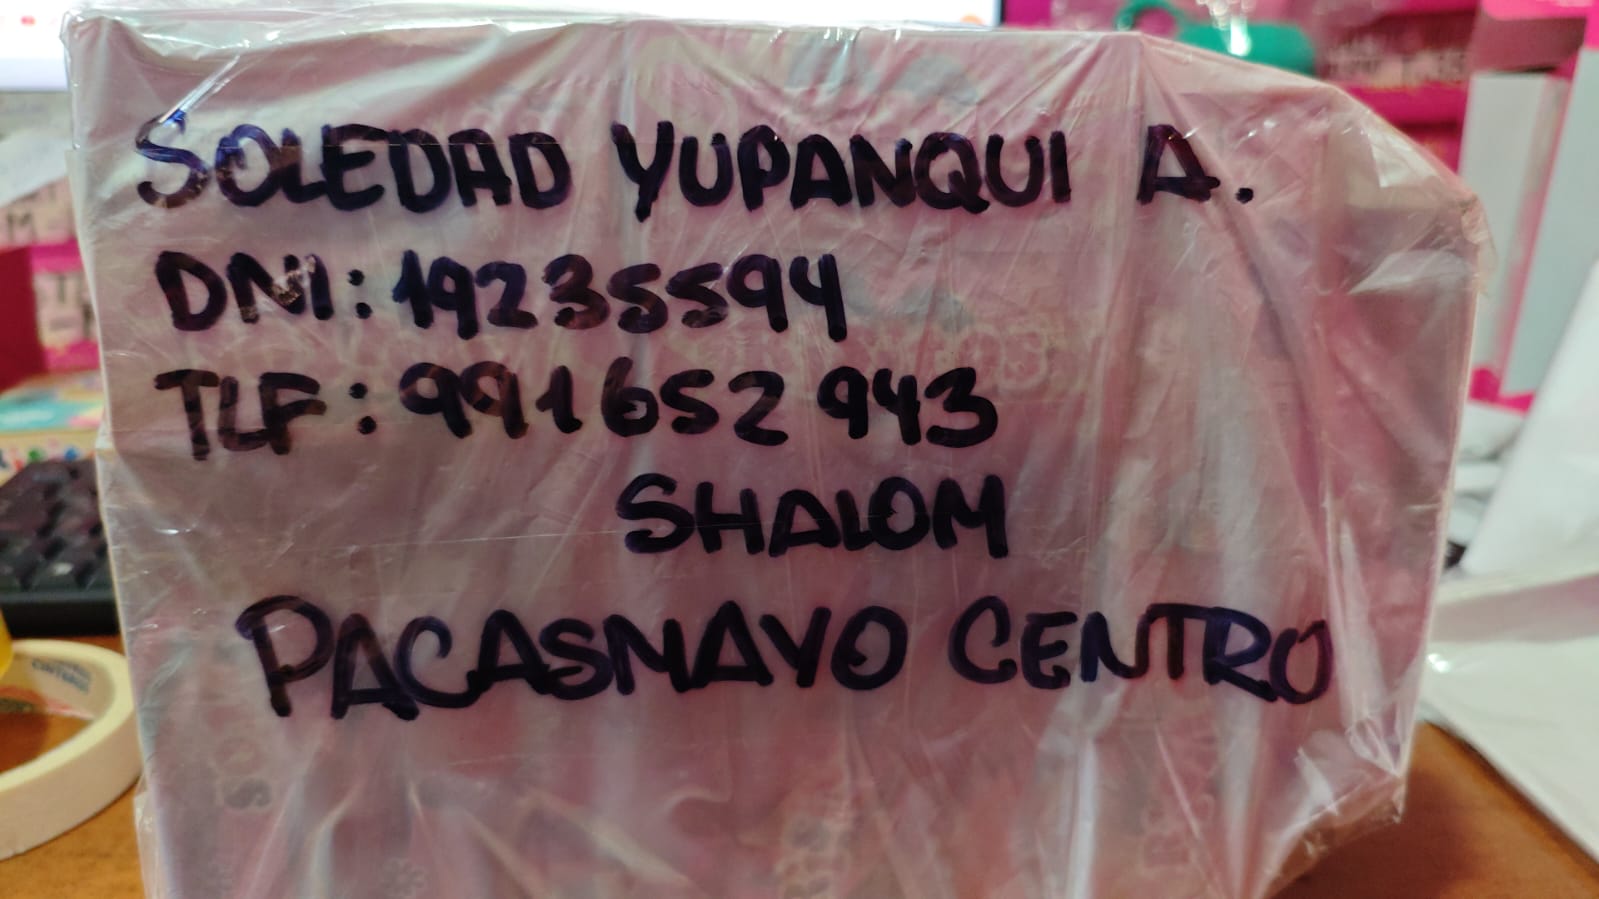 SOLEDAD YUPANQUI A.
DNI: 19235594
TLF: 991652943
SHALOM
PACASMAYO CENTRO